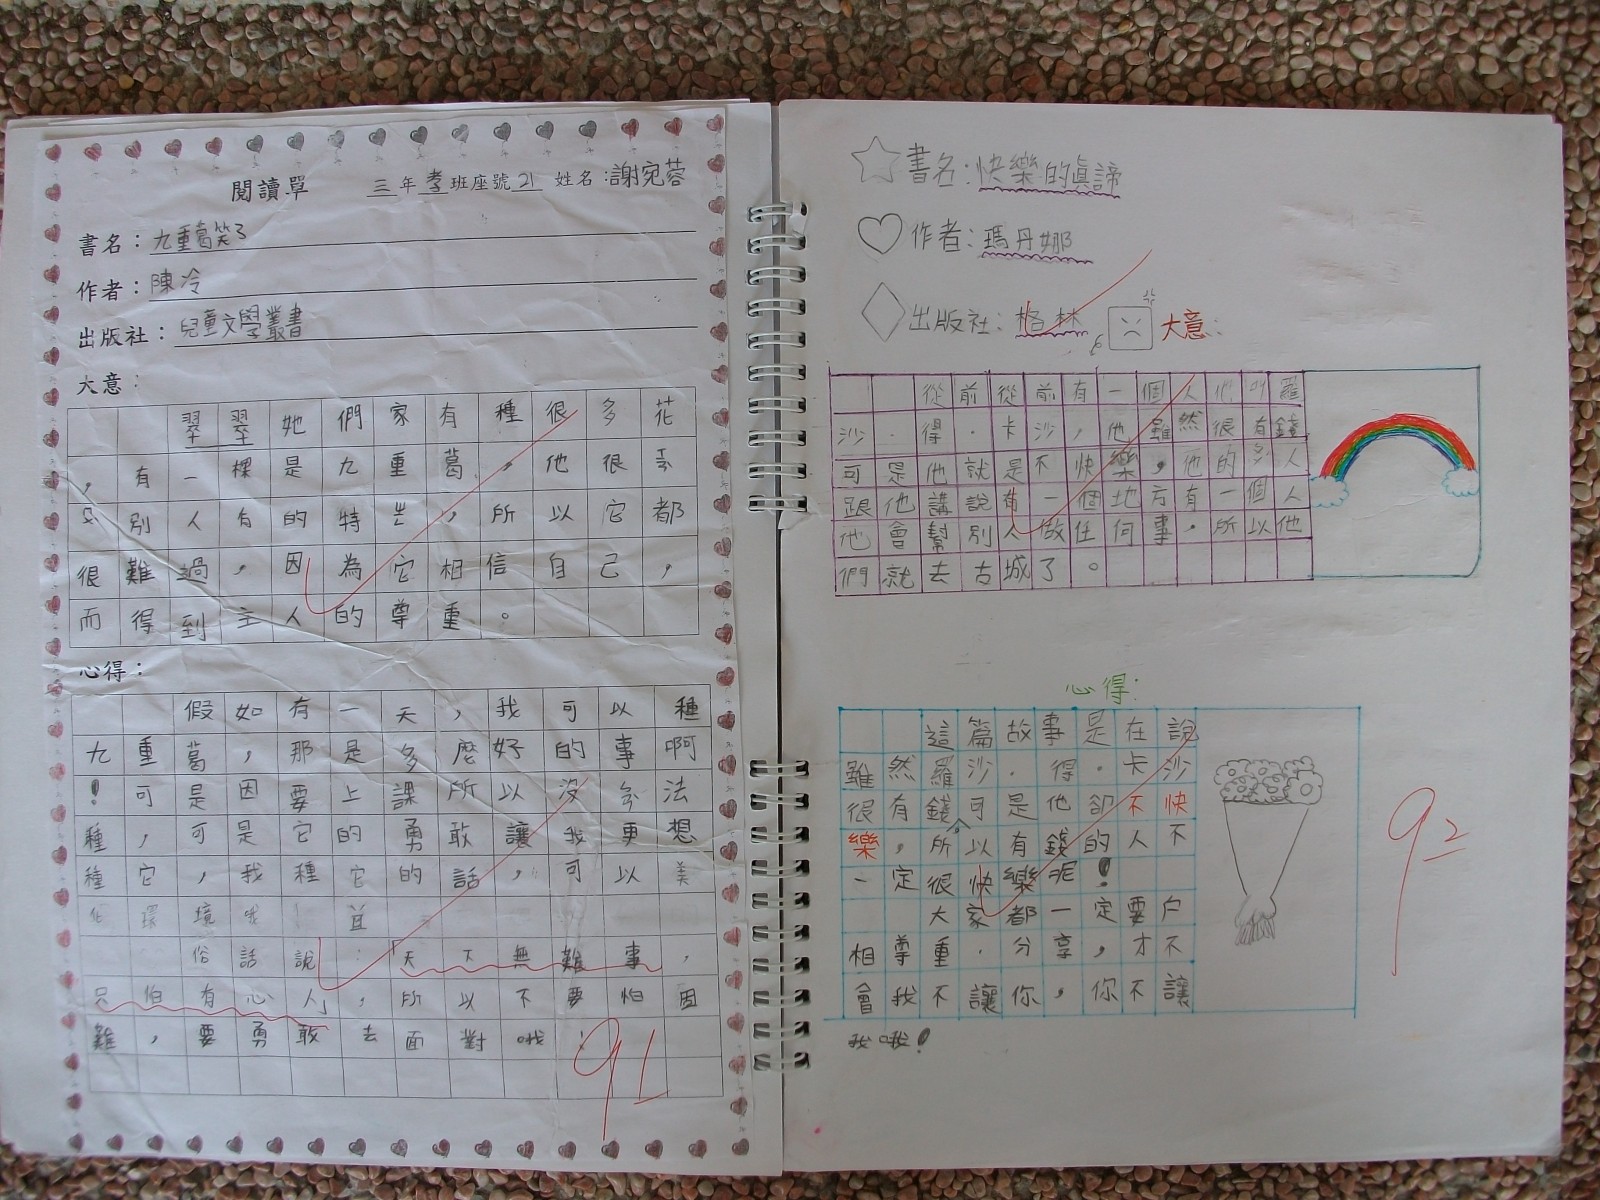 閱讀單 三年孝班座號21 姓名：謝宛蓉
書名：九重葛笑了
作者：陳冷
出版社：兒童文學叢書
大意：
翠翠她們家有種很多花
，有一棵是九重葛，他很
別人有的特　，所以它都
很難過，因為它相信自己，
而得到主人的尊重。
心得：
假如有一天，我可以種
九重葛，那是多麼好的事啊
！可是因要上課所以沒辦法
種，可是它的勇敢讓我更想
種它，我種它的話，可以美
化環境哦
俗話說：「天下無難事，
只怕有心人」，所以不要怕困
難，要勇敢去面對哦！
91
書名：快樂的真諦
作者：瑪丹娜
出版社：格林
大意：
從前從前有一個人他叫羅
沙．得．卡沙，他雖然很有錢
可是他就是不快樂，他的多人
跟他講說有一個地方有一個人
他會幫別人做任何事，所以他
們就去古城了。
心得：
這篇故事是在說
雖然羅沙．得．卡沙
很有錢可是他卻不快
樂，所以有錢的人不
一定很快樂呢！
大家都一定要
相尊重．分享，才不
會我不讓你，你不讓
我哦！
92